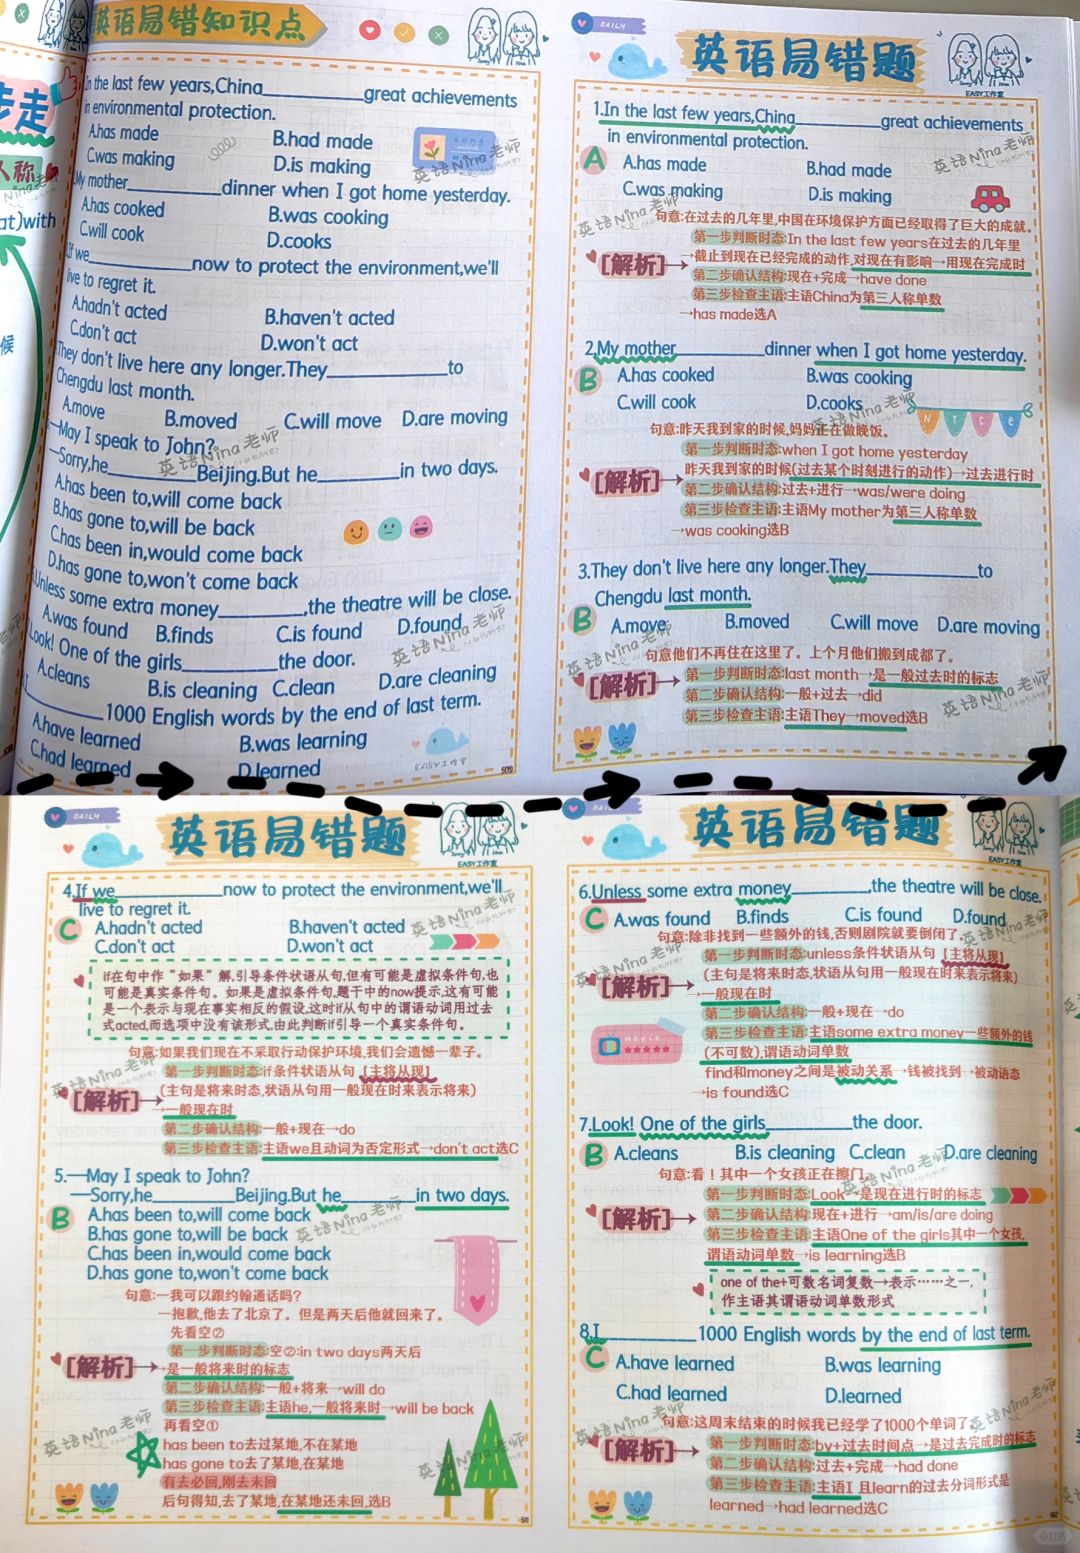 步走
人称
at)with
候
英语易错知识点
In the last few years,China__________great achievements
in environmental protection.
A.has made B.had made
C.was making D.is making
My mother__________dinner when I got home yesterday.
A.has cooked B.was cooking
C.will cook D.cooks
If we__________now to protect the environment,we'll
live to regret it.
A.hadn't acted B.haven't acted
C.don't act D.won't act
They don't live here any longer.They__________to
Chengdu last month.
A.move B.moved C.will move D.are moving
—May I speak to John?
—Sorry,he__________Beijing.But he__________in two days.
A.has been to,will come back
B.has gone to,will be back
C.has been in,would come back
D.has gone to,won't come back
Unless some extra money__________,the theatre will be close.
A.was found B.finds C.is found D.found
Look! One of the girls__________the door.
A.cleans B.is cleaning C.clean D.are cleaning
I__________1000 English words by the end of last term.
A.have learned B.was learning
C.had learned D.learned
EASY工作室
509
DAILY
英语易错题
EASY工作室
1.In the last few years,China__________great achievements
in environmental protection.
A
A.has made B.had made
C.was making D.is making
句意:在过去的几年里,中国在环境保护方面已经取得了巨大的成就。
第一步判断时态:In the last few years在过去的几年里
[解析]→截止到现在已经完成的动作,对现在有影响→用现在完成时
第二步确认结构:现在+完成→have done
第三步检查主语:主语China为第三人称单数
→has made选A
2.My mother__________dinner when I got home yesterday.
B
A.has cooked B.was cooking
C.will cook D.cooks
Nice
句意:昨天我到家的时候,妈妈正在做晚饭。
第一步判断时态:when I got home yesterday
[解析]→昨天我到家的时候(过去某个时刻进行的动作)→过去进行时
第二步确认结构:过去+进行→was/were doing
第三步检查主语:主语My mother为第三人称单数
→was cooking选B
3.They don't live here any longer.They__________to
Chengdu last month.
B
A.move B.moved C.will move D.are moving
句意他们不再住在这里了。上个月他们搬到成都了。
[解析]→第一步判断时态:last month→是一般过去时的标志
第二步确认结构:一般+过去→did
第三步检查主语:主语They→moved选B
英语Nina老师
DAILY
英语易错题
EASY工作室
4.If we__________now to protect the environment,we'll
live to regret it.
C
A.hadn't acted B.haven't acted
C.don't act D.won't act
if在句中作“如果”解,引导条件状语从句,但有可能是虚拟条件句,也
可能是真实条件句。如果是虚拟条件句,题干中的now提示,这有可能
是一个表示与现在事实相反的假设,这时if从句中的谓语动词用过去
式acted,而选项中没有该形式,由此判断if引导一个真实条件句。
句意:如果我们现在不采取行动保护环境,我们会遗憾一辈子。
第一步判断时态:if条件状语从句【主将从现】
[解析]→(主句是将来时态,状语从句用一般现在时来表示将来)
→一般现在时
第二步确认结构:一般+现在→do
第三步检查主语:主语we且动词为否定形式→don't act选C
5.—May I speak to John?
—Sorry,he__________Beijing.But he__________in two days.
B
A.has been to,will come back
B.has gone to,will be back
C.has been in,would come back
D.has gone to,won't come back
句意:—我可以跟约翰通话吗?
—抱歉,他去了北京了。但是两天后他就回来了。
先看空②
第一步判断时态:空②:in two days两天后
[解析]→是一般将来时的标志
第二步确认结构:一般+将来→will do
第三步检查主语:主语he,一般将来时→will be back
再看空①
has been to去过某地,不在某地
has gone to去了某地,在某地
有去必回,刚去未回
后句得知,去了某地,在某地还未回,选B
511
DAILY
英语易错题
EASY工作室
6.Unless some extra money__________,the theatre will be close.
C
A.was found B.finds C.is found D.found
句意:除非找到一些额外的钱,否则剧院就要倒闭了。
第一步判断时态:unless条件状语从句【主将从现】
[解析]→(主句是将来时态,状语从句用一般现在时来表示将来)
→一般现在时
第二步确认结构:一般+现在→do
第三步检查主语:主语some extra money一些额外的钱
(不可数),谓语动词单数
find和money之间是被动关系→钱被找到→被动语态
→is found选C
movie
7.Look! One of the girls__________the door.
B
A.cleans B.is cleaning C.clean D.are cleaning
句意:看!其中一个女孩正在擦门。
第一步判断时态:Look→是现在进行时的标志
[解析]→第二步确认结构:现在+进行→am/is/are doing
第三步检查主语:主语One of the girls其中一个女孩,
谓语动词单数→is learning选B
one of the+可数名词复数→表示……之一,
作主语其谓语动词单数形式
8.I__________1000 English words by the end of last term.
C
A.have learned B.was learning
C.had learned D.learned
句意:这周末结束的时候我已经学了1000个单词了。
[解析]→第一步判断时态:by+过去时间点→是过去完成时的标志
第二步确认结构:过去+完成→had done
第三步检查主语:主语I 且learn的过去分词形式是
learned→had learned选C
512
小红书